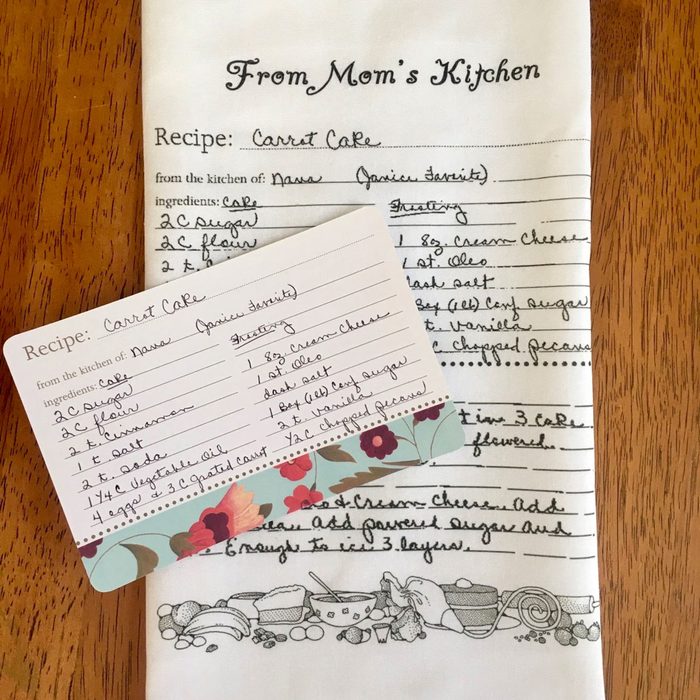 From Mom's Kitchen
Recipe: Carrot Cake
from the kitchen of: Nana (Janice Favorite)
ingredients: Cake Frosting
2 C sugar
2 C flour
2 t.
1 8z. Cream Cheese
1 st. Oleo
dash salt
Box (1lb) Conf Sugar
t. Vanilla
C chopped pecans
in 3 cake
flowered.
& Cream Cheese. Add
Add powered sugar and
Enough to ice 3 layers.
Recipe: Carrot Cake
from the kitchen of: Nana (Janice Favorite)
ingredients: Cake
2 C sugar
2 C flour
2 t. Cinnamon
1 t salt
2 t. soda
1 1/4 C Vegetable Oil
4 eggs & 3 C grated carrot
Frosting
1 8z. Cream Cheese
1 st. Oleo
dash salt
1 Box (1lb) Conf Sugar
2 t. Vanilla
1/2 C chopped pecans